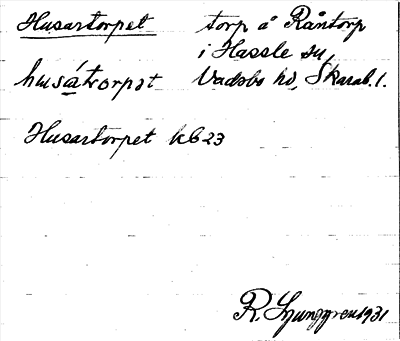 Husartorpet torp å Råntorp
i Hassle sn,
husátorpet Vadsbo hd, Skarab. l.
Husartorpet kb 23
R. Ljunggren 1931